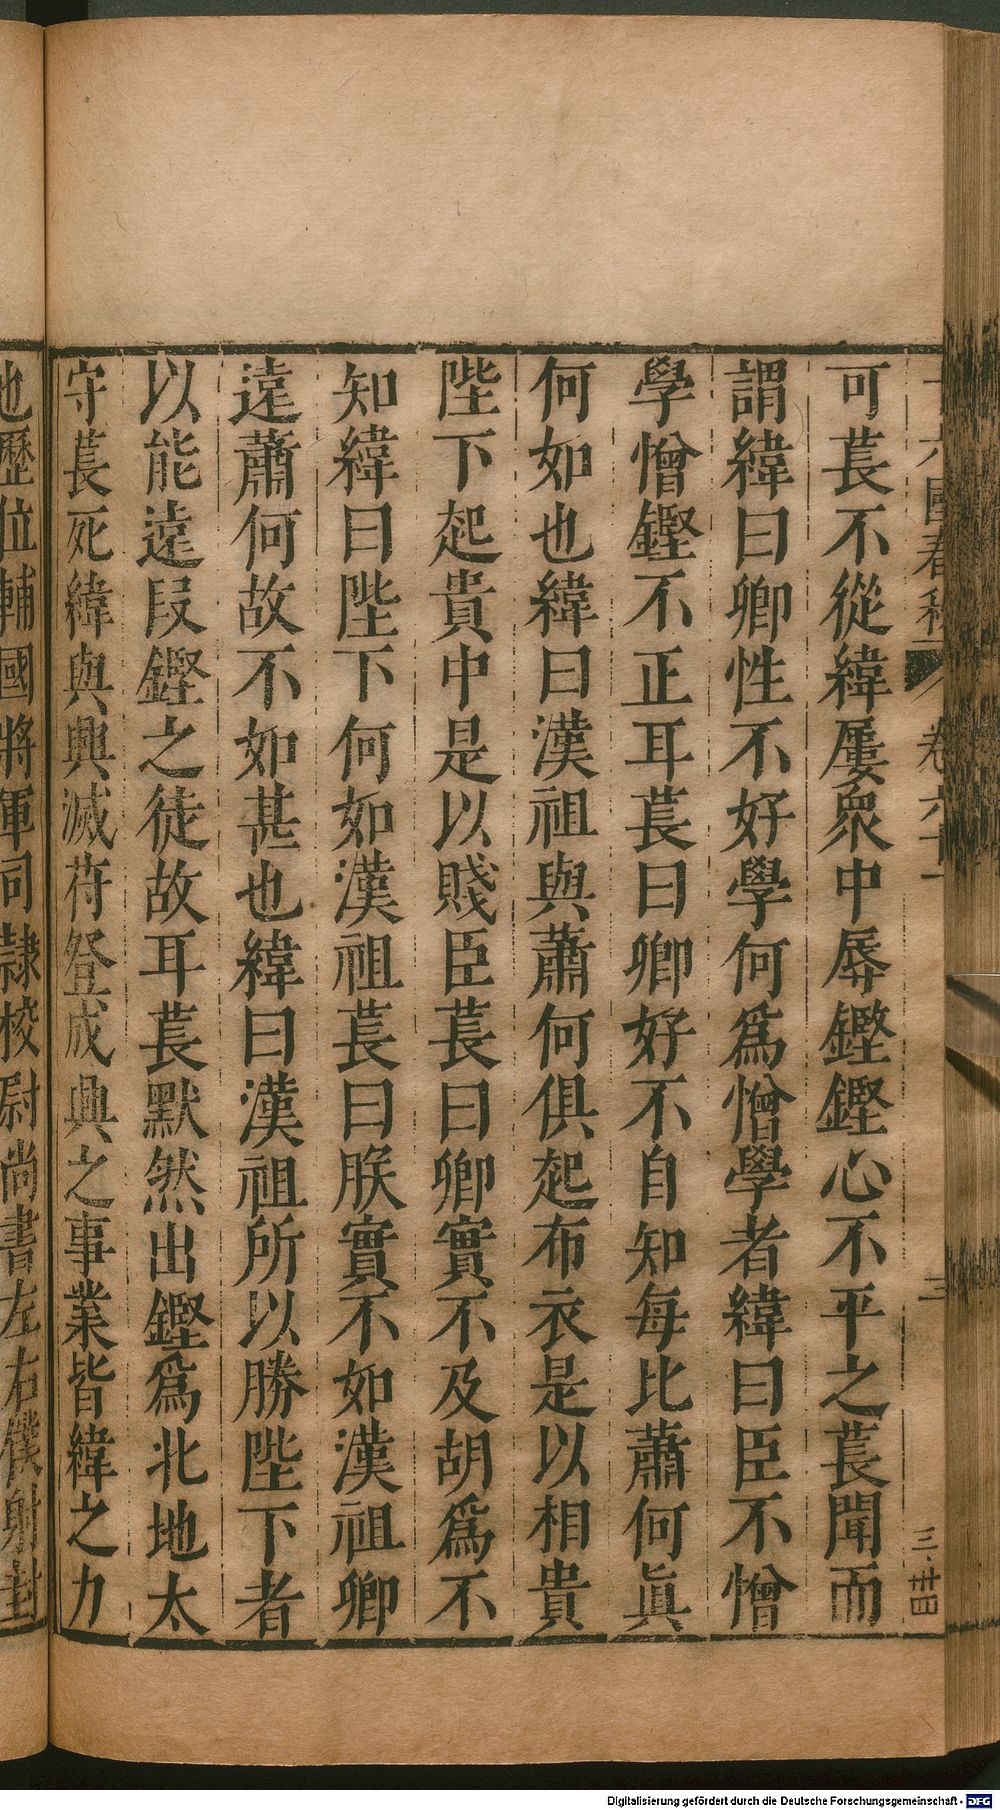 可萇不從緯屢衆中辱鏗鏗心不平之萇聞而
謂緯曰卿性不好學何爲憎學者緯曰臣不憎
學憎鏗不正耳萇曰卿好不自知每比蕭何眞
何如也緯曰漢祖與蕭何俱起布衣是以相貴
陛下起貴中是以賤臣萇曰卿實不及胡爲不
知緯曰陛下何如漢祖萇曰朕實不如漢祖卿
遠蕭何故不如甚也緯曰漢祖所以勝陛下者
以能遠段鏗之徒故耳萇默然出鏗爲北地太
守萇死緯與興滅苻登成興之事業皆緯之力
也歷位輔國將軍司隷校尉尚書左右僕射封
Digitalisierung gefördert durch die Deutsche Forschungsgemeinschaft - DFG